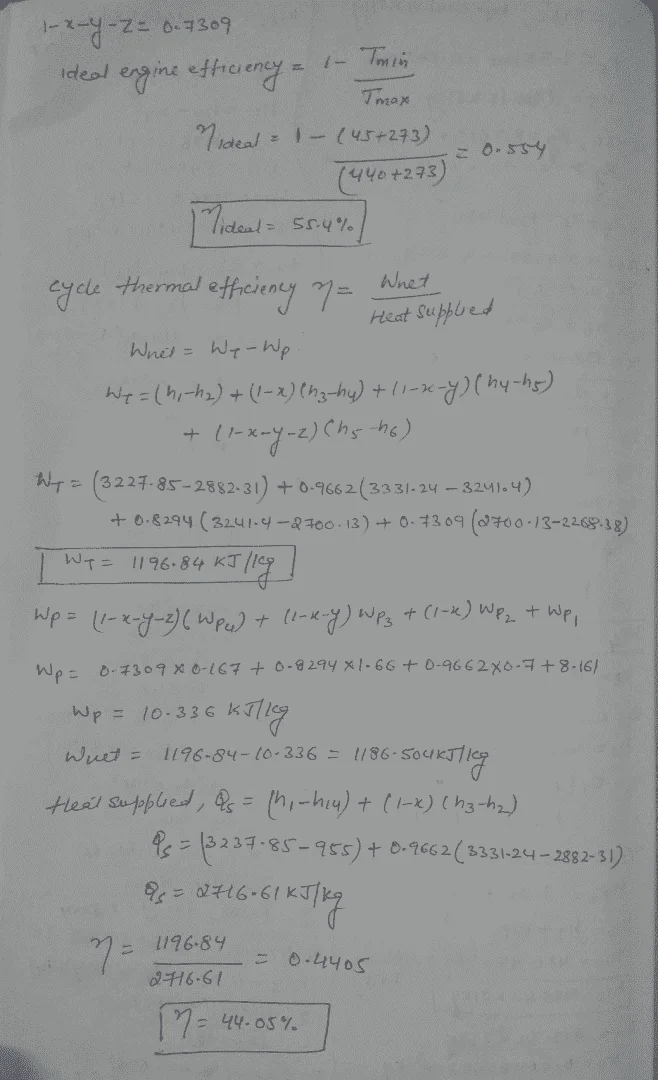 1-x-y-z = 0.7309
ideal engine efficiency = 1 - Tmin
Tmax
ηideal = 1 - (45+273) = 0.554
(440+273)
ηideal = 55.4%
cycle thermal efficiency η = Wnet
Heat Supplied
Wnet = WT - Wp
WT = (h1-h2) + (1-x)(h3-h4) + (1-x-y)(h4-h5)
+ (1-x-y-z)(h5-h6)
WT = (3227.85-2882.31) + 0.9662(3331.24 - 3241.4)
+ 0.8294(3241.4-2700.13) + 0.7309(2700.13-2268.38)
WT = 1196.84 KJ/kg
Wp = (1-x-y-z)(Wp4) + (1-x-y) Wp3 + (1-x) Wp2 + Wp1
Wp = 0.7309 x 0.167 + 0.8294 x 1.66 + 0.9662 x 0.7 + 8.161
Wp = 10.336 kJ/kg
Wnet = 1196.84-10.336 = 1186.504kJ/kg
Heat supplied, Qs = (h1-h14) + (1-x)(h3-h2)
Qs = (3237.85-955) + 0.9662(3331.24-2882.31)
Qs = 2716.61 kJ/kg
η = 1196.84 = 0.4405
2716.61
η = 44.05%